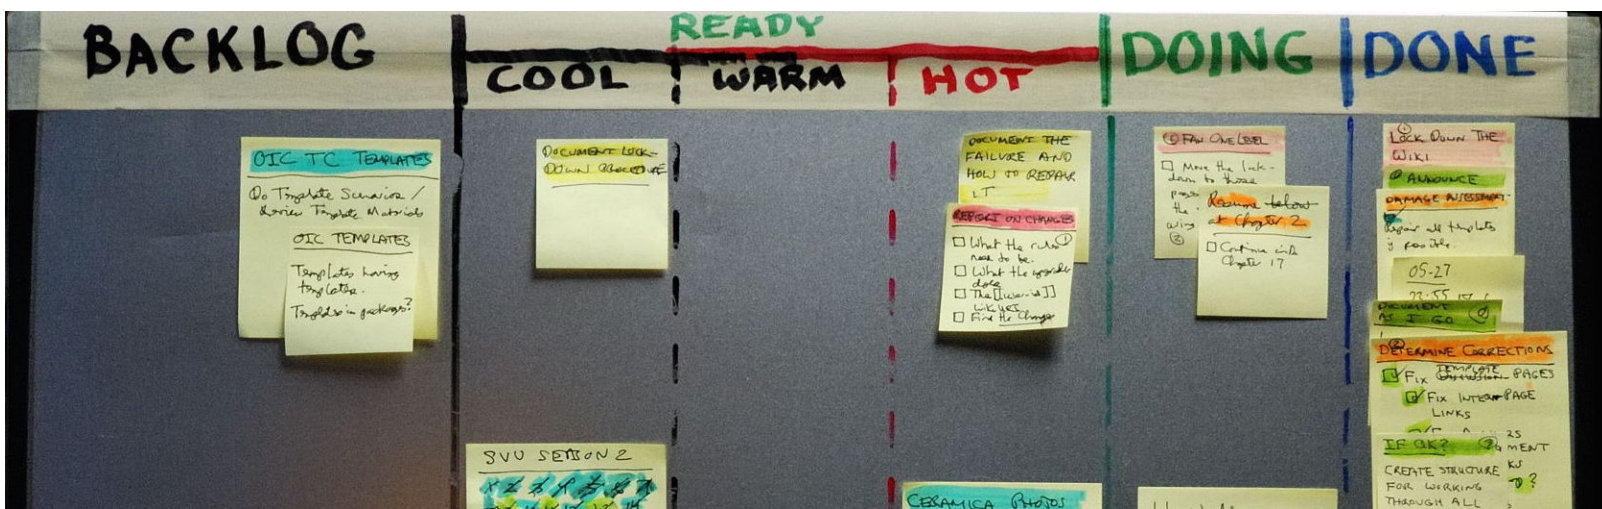 BACKLOG
READY
COOL
WARM
HOT
DOING
DONE
OIC TC TEMPLATES
Do Template Scenarios /
Review Template Materials
OIC TEMPLATES
Templates having
templates.
Templates in packages?
DOCUMENT LOCK-
DOWN PROCEDURE
SVU SEASON 2
DOCUMENT THE
FAILURE AND
HOW TO REPAIR
IT
REPORT ON CHANGES
What the rules
need to be.
What the upgrader
does
The
Find the Changes
CERAMICA PHOTOS
FAN ONE LEVEL
Move the lock-
down to those
pages
the
Resume below
at Chapter 2
Continue with
Chapter 17
LOCK DOWN THE
WIKI
ANNOUNCE
DAMAGE ASSESSMENT
Repair all templates
if possible.
05-27
DOCUMENT
AS I GO
DETERMINE CORRECTIONS
FIX TEMPLATE PAGES
FIX INTERPAGE
LINKS
IF OK?
CREATE STRUCTURE
FOR WORKING
THROUGH ALL